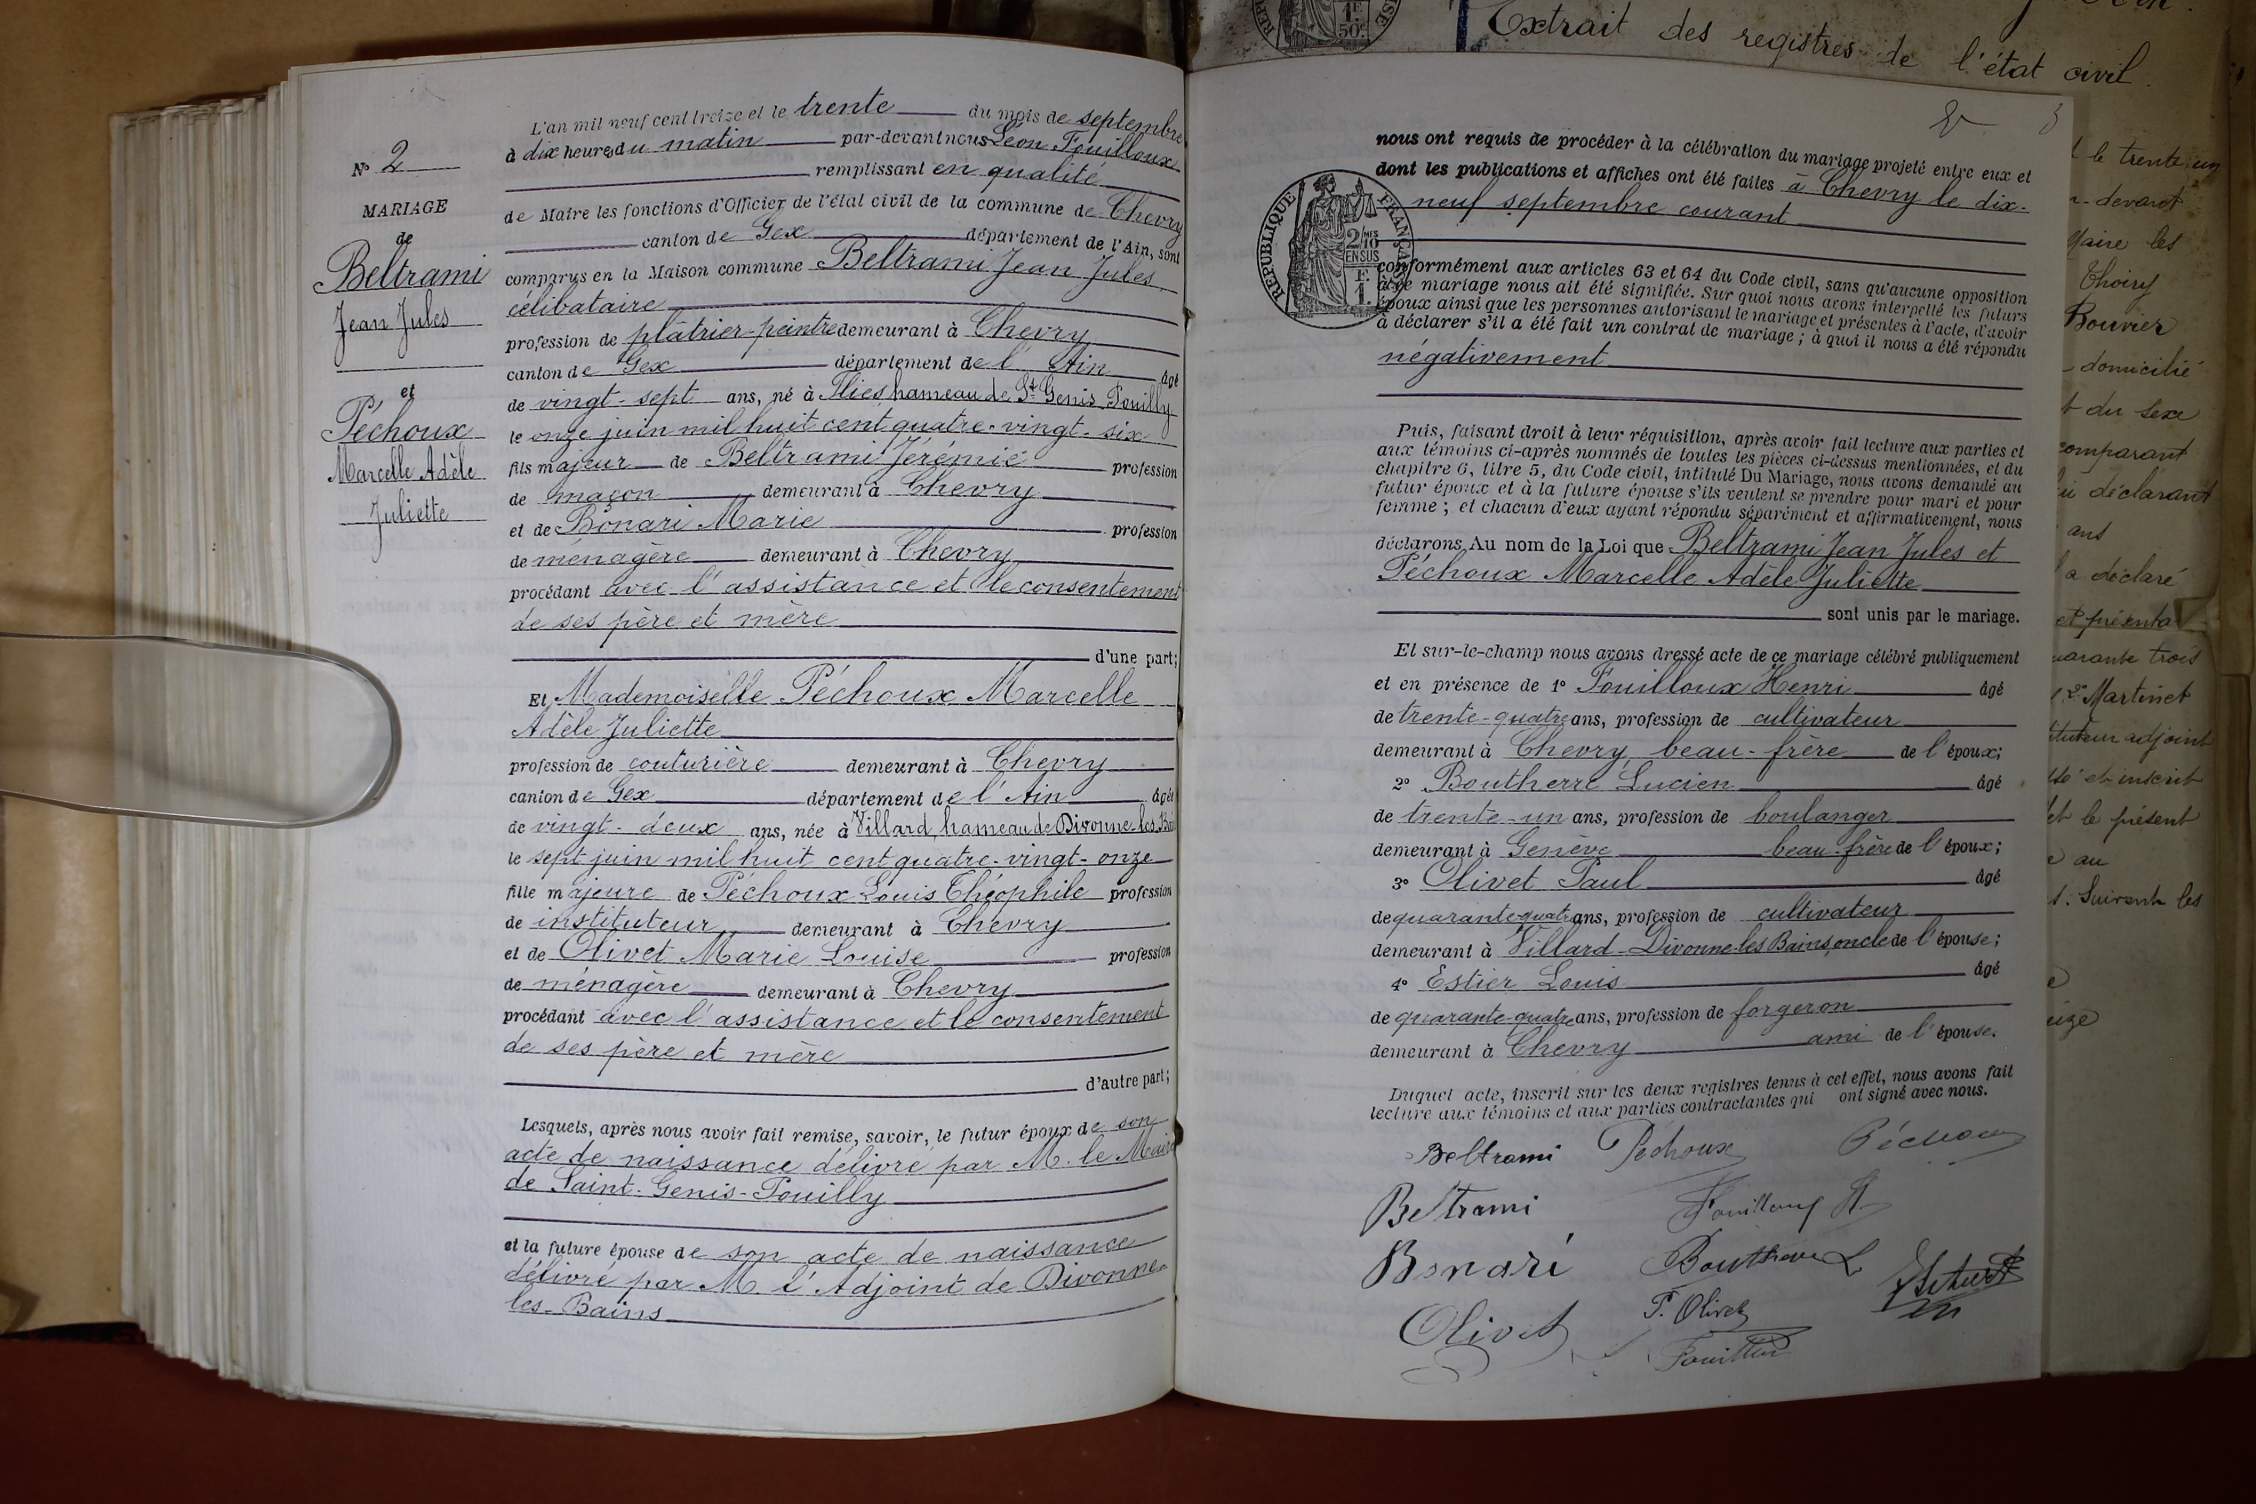 N° 2
MARIAGE
de
Beltrami
Jean Jules
et
Péchoux
Marcelle Adèle
Juliette
L'an mil neuf cent treize et le trente du mois de septembre
à dix heures du matin par-devant nous Léon Fouilloux
remplissant en qualité
de Maire les fonctions d'Officier de l'état civil de la commune de Chevry
canton de Gex département de l'Ain, sont
comparus en la Maison commune Beltrami Jean Jules
célibataire
profession de plâtrier-peintre demeurant à Chevry
canton de Gex département de l'Ain âgé
de vingt-sept ans, né à Flies hameau de St Genis-Pouilly
le onze juin mil huit cent quatre-vingt-six
fils majeur de Beltrami Jérémie profession
de maçon demeurant à Chevry
et de Bonari Marie profession
de ménagère demeurant à Chevry
procédant avec l'assistance et le consentement
de ses père et mère
d'une part;
Et Mademoiselle Péchoux Marcelle
Adèle Juliette
profession de couturière demeurant à Chevry
canton de Gex département de l'Ain âgée
de vingt-deux ans, née à Villard, hameau de Divonne-les-Bains
le sept juin mil huit cent quatre-vingt-onze
fille majeure de Péchoux Louis Théophile profession
de instituteur demeurant à Chevry
et de Olivet Marie Louise profession
de ménagère demeurant à Chevry
procédant avec l'assistance et le consentement
de ses père et mère
d'autre part;
Lesquels, après nous avoir fait remise, savoir, le futur époux de son
acte de naissance délivré par M. le Maire
de Saint-Genis-Pouilly
et la future épouse de son acte de naissance
délivré par M. l'Adjoint de Divonne-
les-Bains
Extrait des registres de l'état civil.
nous ont requis de procéder à la célébration du mariage projeté entre eux et
dont les publications et affiches ont été faites à Chevry le dix-
neuf septembre courant
RÉPUBLIQUE FRANÇAISE
2/10 EN SUS
F. 1.
conformément aux articles 63 et 64 du Code civil, sans qu'aucune opposition
à ce mariage nous ait été signifiée. Sur quoi nous avons interpellé les futurs
époux ainsi que les personnes autorisant le mariage et présentes à l'acte, d'avoir
à déclarer s'il a été fait un contrat de mariage; à quoi il nous a été répondu
négativement
Puis, faisant droit à leur réquisition, après avoir fait lecture aux parties et
aux témoins ci-après nommés de toutes les pièces ci-dessus mentionnées, et du
chapitre 6, titre 5, du Code civil, intitulé Du Mariage, nous avons demandé au
futur époux et à la future épouse s'ils veulent se prendre pour mari et pour
femme; et chacun d'eux ayant répondu séparément et affirmativement, nous
déclarons Au nom de la Loi que Beltrami Jean Jules et
Péchoux Marcelle Adèle Juliette
sont unis par le mariage.
Et sur-le-champ nous avons dressé acte de ce mariage célébré publiquement
et en présence de 1° Fouilloux Henri âgé
de trente-quatre ans, profession de cultivateur
demeurant à Chevry, beau-frère de l'époux;
2° Boutherre Lucien âgé
de trente-un ans, profession de boulanger
demeurant à Genève beau-frère de l'époux;
3° Olivet Paul âgé
de quarante-quatre ans, profession de cultivateur
demeurant à Villard-Divonne-les-Bains, oncle de l'épouse;
4° Estier Louis âgé
de quarante-quatre ans, profession de forgeron
demeurant à Chevry ami de l'épouse.
Duquel acte, inscrit sur les deux registres tenus à cet effet, nous avons fait
lecture aux témoins et aux parties contractantes qui ont signé avec nous.
Beltrami Péchoux Péchoux
Beltrami Fouilloux H.
Bonari Boutherre L
Olivet P. Olivet
Fouilloux
le trente un
devant
Maire les
Thoiry
Bouvier
domicilié
du sexe
comparant
déclarant
ans
a déclaré
et présenta
quarante trois
2° Martinet
instituteur adjoint
et inscrit
et le présent
au
Suivent les